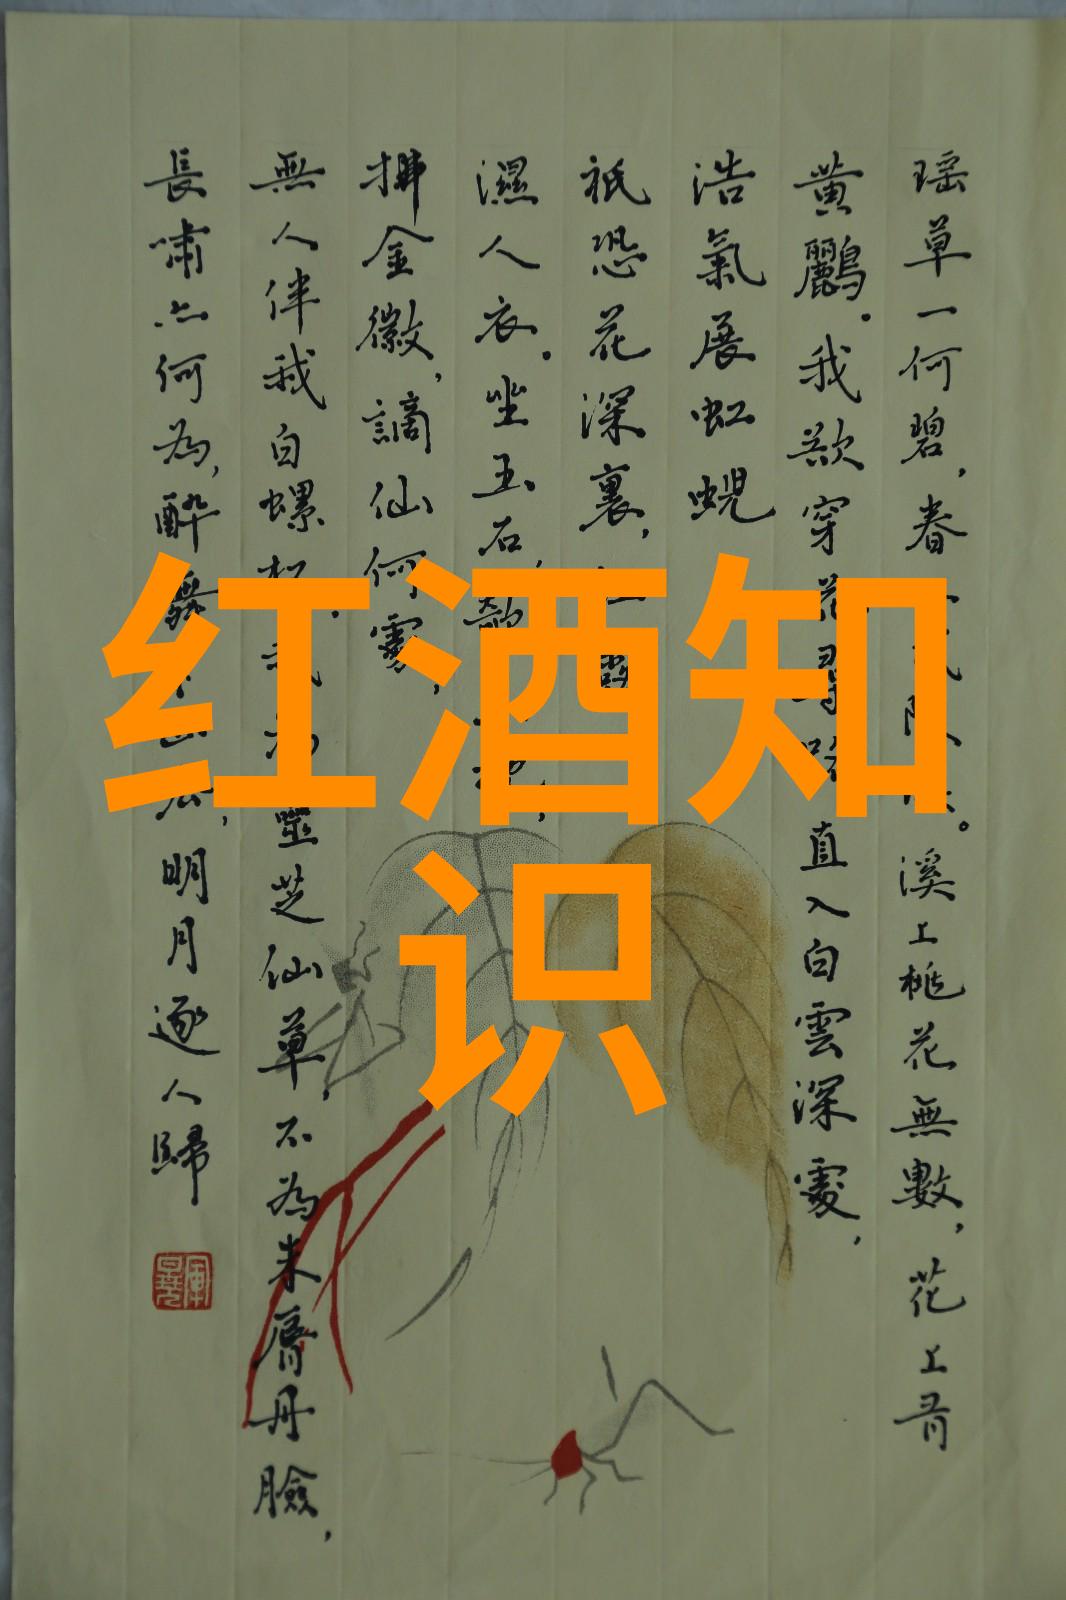 瑶草一何碧，春溪上桃花無數，花上有
黄鸝。我欲穿花尋路直入白雲深處，
浩氣展虹蜺
祇恐花深裏，
濕人衣。坐玉石，
拂金徽，謫仙何處，
無人伴我白螺杯。為靈芝仙草，不為朱唇丹臉，
長嘯亦何為，醉舞明月逐人歸
红酒知
识